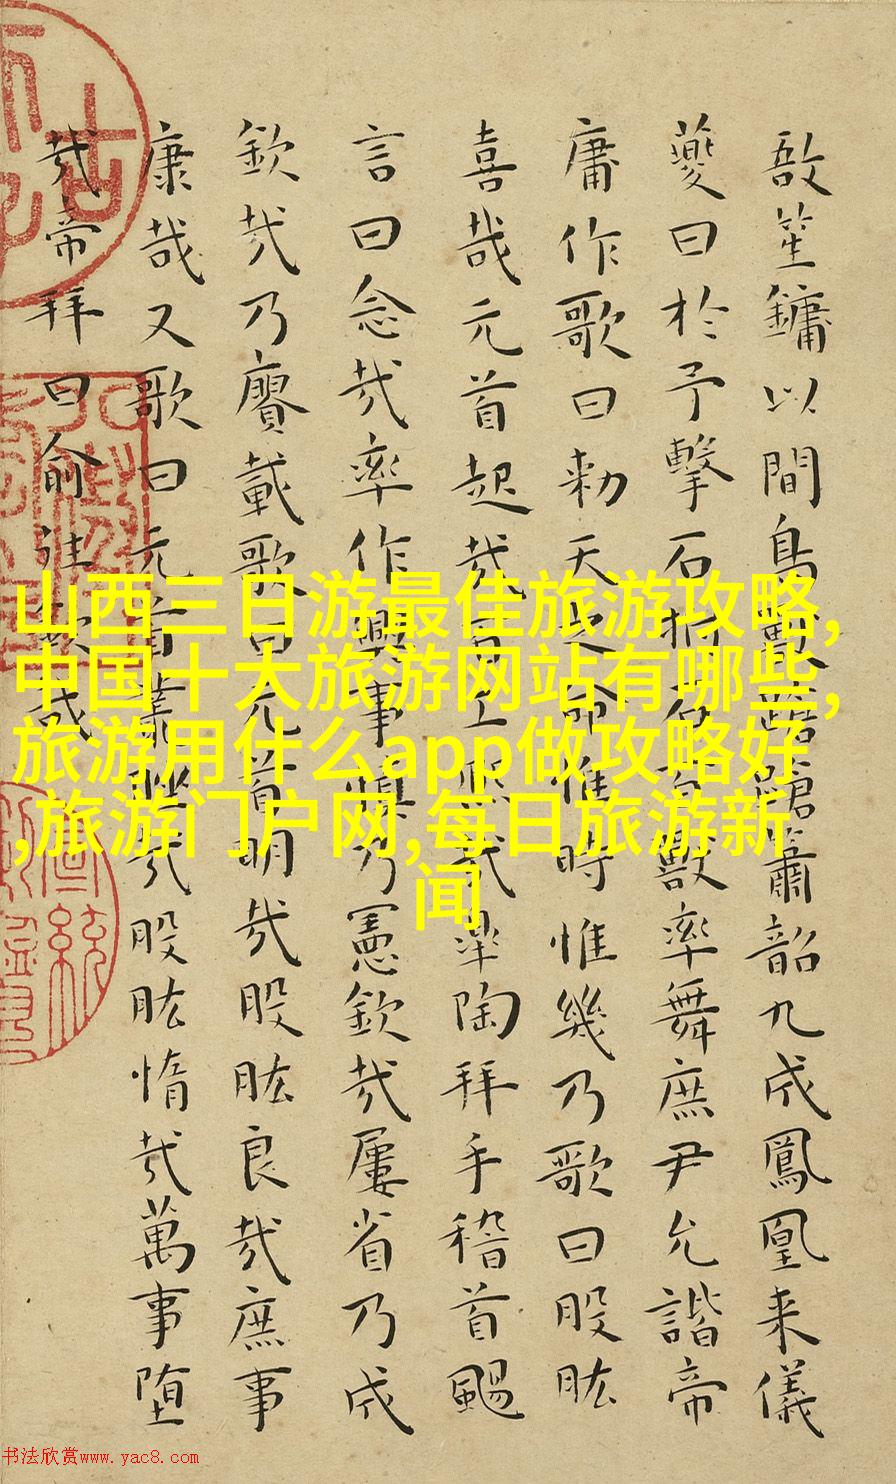 敔笙鏞以間鳥獸蹌蹌簫韶九成鳳凰来儀
夔曰於予擊石拊石百獸率舞庶尹允諧帝
庸作歌曰勑天之命惟時惟幾乃歌曰股肱
喜哉元首起哉百工熙哉皋陶拜手稽首颺
言曰念哉率作興事慎乃憲欽哉屢省乃成
欽哉乃賡載歌曰元首明哉股肱良哉庶事
康哉又歌曰元首叢脞哉股肱惰哉萬事堕
哉帝拜曰俞往欽哉
山西三日游最佳旅游攻略,
中国十大旅游网站有哪些,
旅游用什么app做攻略好
,旅游门户网,每日旅游新
闻
书法欣赏www.yac8.com